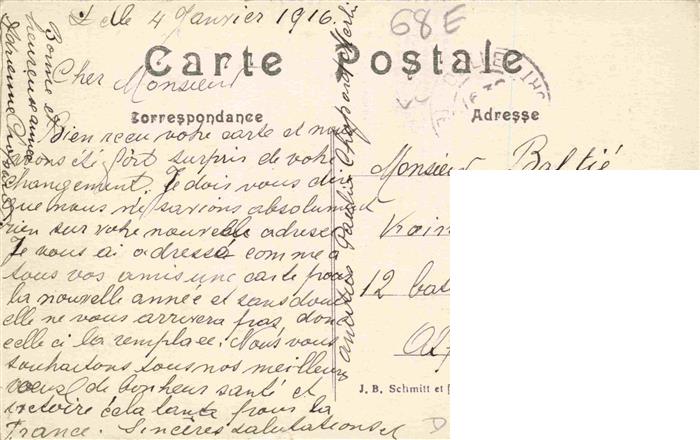 Lille 4 Janvier 1916.
68 E
Carte Postale
Cher Monsieur
Correspondance
Adresse
Bien reçu votre carte et nous
avons été fort surpris de votre
changement. Je dois vous dire
que nous ne savions absolument
rien sur votre nouvelle adresse
Je vous ai adressé comme à
tous vos amis une carte pour
la nouvelle année et sans doute
elle ne vous arrivera pas, donc
celle ci la remplace. Nous vous
souhaitons tous nos meilleurs
vœux de bonheur santé et
victoire cela tarde pour la
France. Sincères salutations et
Bonne et
heureuse année
amitiés Pauline
Monsieur Baltié
12 bat
J. B. Schmitt et
D